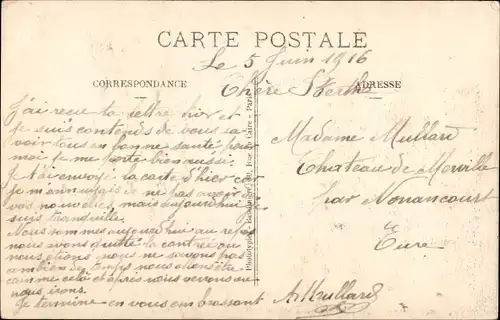 CARTE POSTALE
Le 5 Juin 1916
CORRESPONDANCE
Chère Berthe
ADRESSE
J'ai reçu ta lettre hier et
je suis contends de vous sa
voir tous en bonne santé pour
moi je me porte bien aussi.
Je t'ai envoyé la carte d'hier car
je m'ennuyais de ne pas avoir
vos nouvelles, mais aujourd'hui je
suis tranquille.
Nous sommes aujourd'hui au repos
nous avons quitté la contrée ou
nous étions, nous ne savons pas
combien de temps nous allons être
comme cela et après nous verrons ou
nous irons.
Je termine en vous embrassant
AMullard
Madame Mullard
Chateau de Merville
par Nonancourt
Eure
Phototypie
Paris